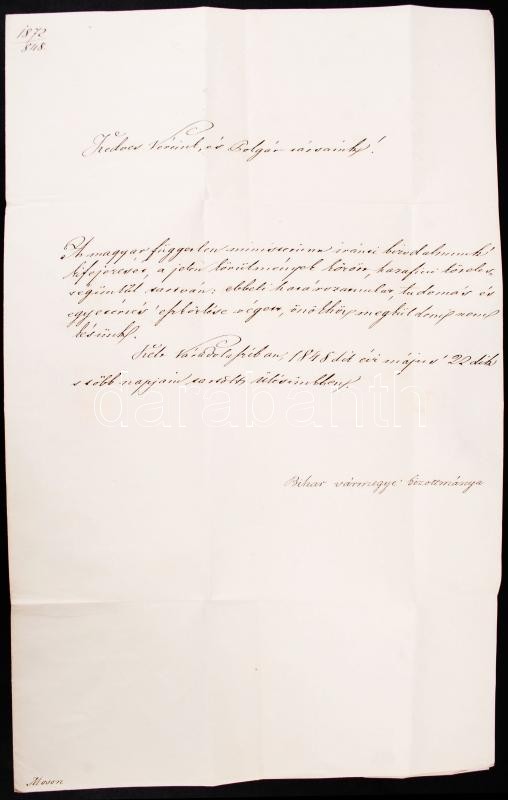 1872
848
Kedves Véreink, és Polgár társaink!
A magyar független ministerium iránti bizodalmunk
kifejezését, a jelen körülmények között, hazafiui köteles-
ségünkül tartván; ebbeli határozatunkat tudomás és
egyetértés' eszközlése végett, önökhöz megküldeni nem
késünk.
Költ Váradolasziban, 1848 dik évi május' 22 dik
s több napjain tartott ülésünkben.
Bihar vármegye' bizottmánya
Moson
darabanth